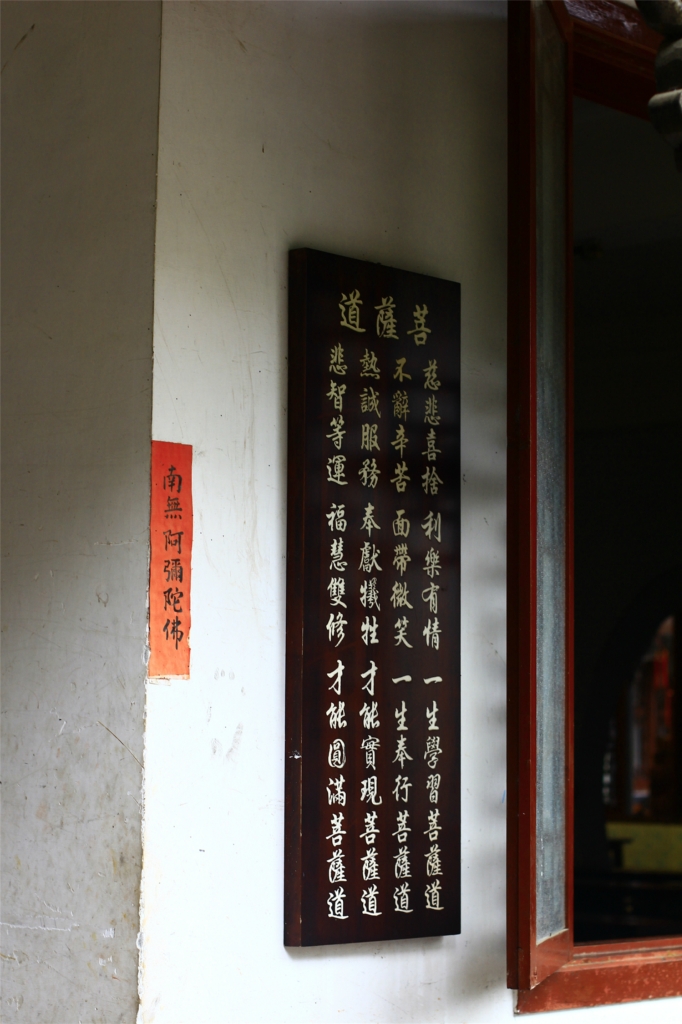 菩薩道
慈悲喜捨 利樂有情 一生學習菩薩道
不辭辛苦 面帶微笑 一生奉行菩薩道
熱誠服務 奉獻犧牲 才能實現菩薩道
悲智等運 福慧雙修 才能圓滿菩薩道
南無阿彌陀佛